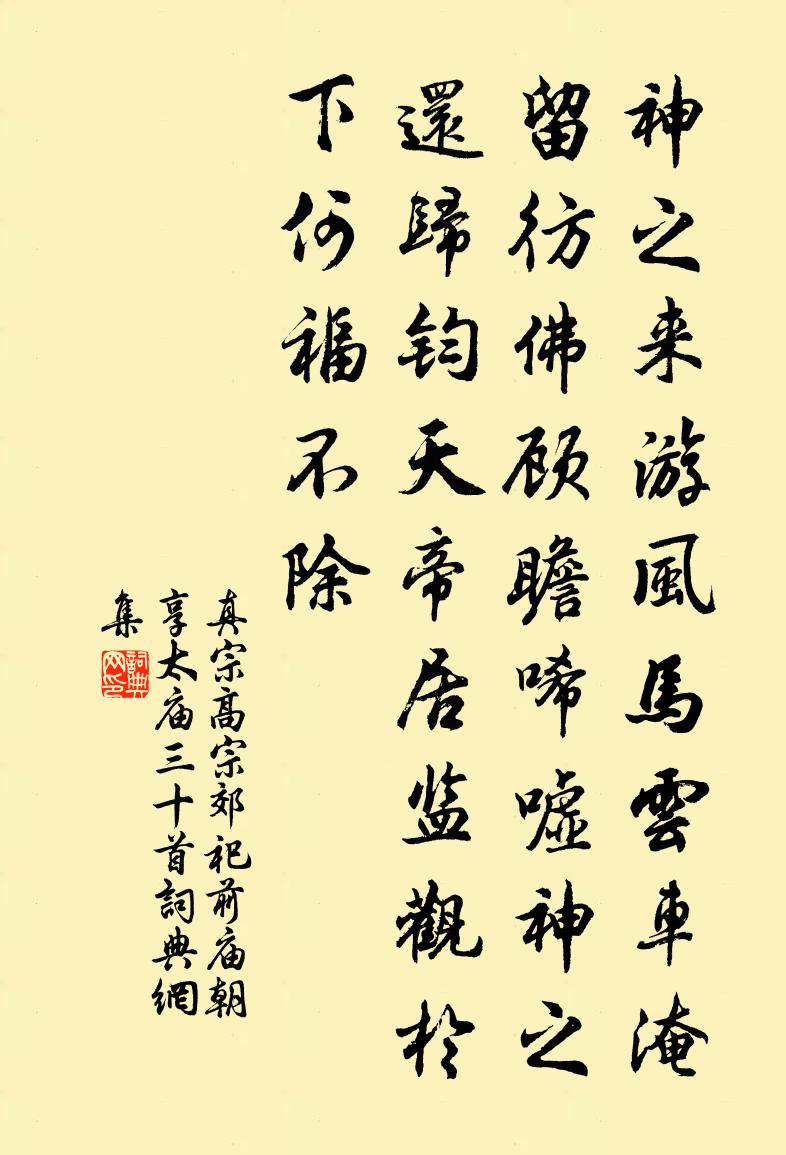 神之来游風馬雲車淹
留彷佛顾瞻唏嘘神之
還歸钧天帝居监觀於
下何福不除
真宗高宗郊祀前庙朝
享太庙三十首詞典網
集
詞典网印